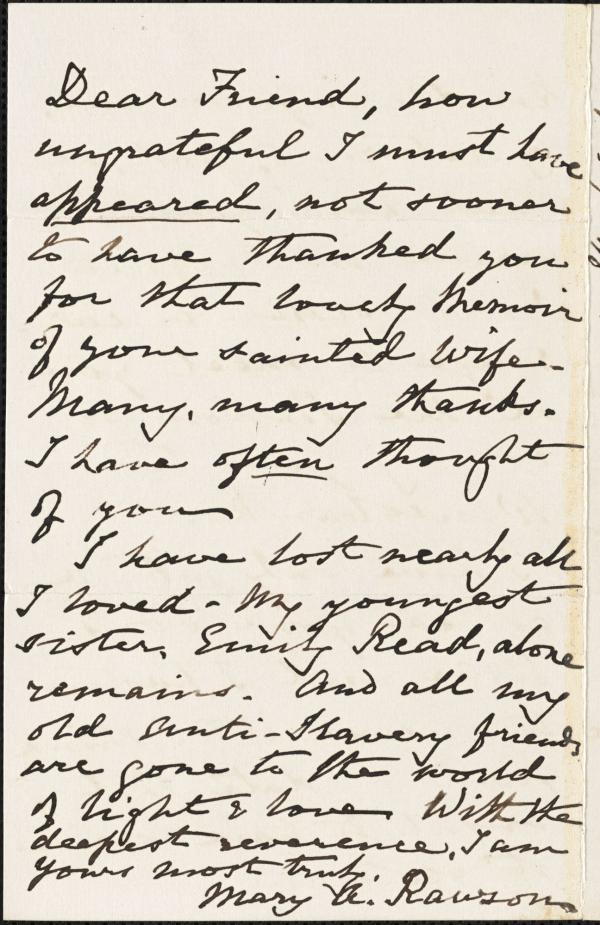 Dear Friend, how
ungrateful I must have
appeared, not sooner
to have thanked you
for that lovely Memoir
of your sainted Wife.
Many, many thanks.
I have often thought
of you
I have lost nearly all
I loved - My youngest
sister, Emily Read, alone
remains. And all my
old Anti-Slavery friends
are gone to the world
of light & love. With the
deepest reverence, I am
yours most truly,
Mary A. Rawson